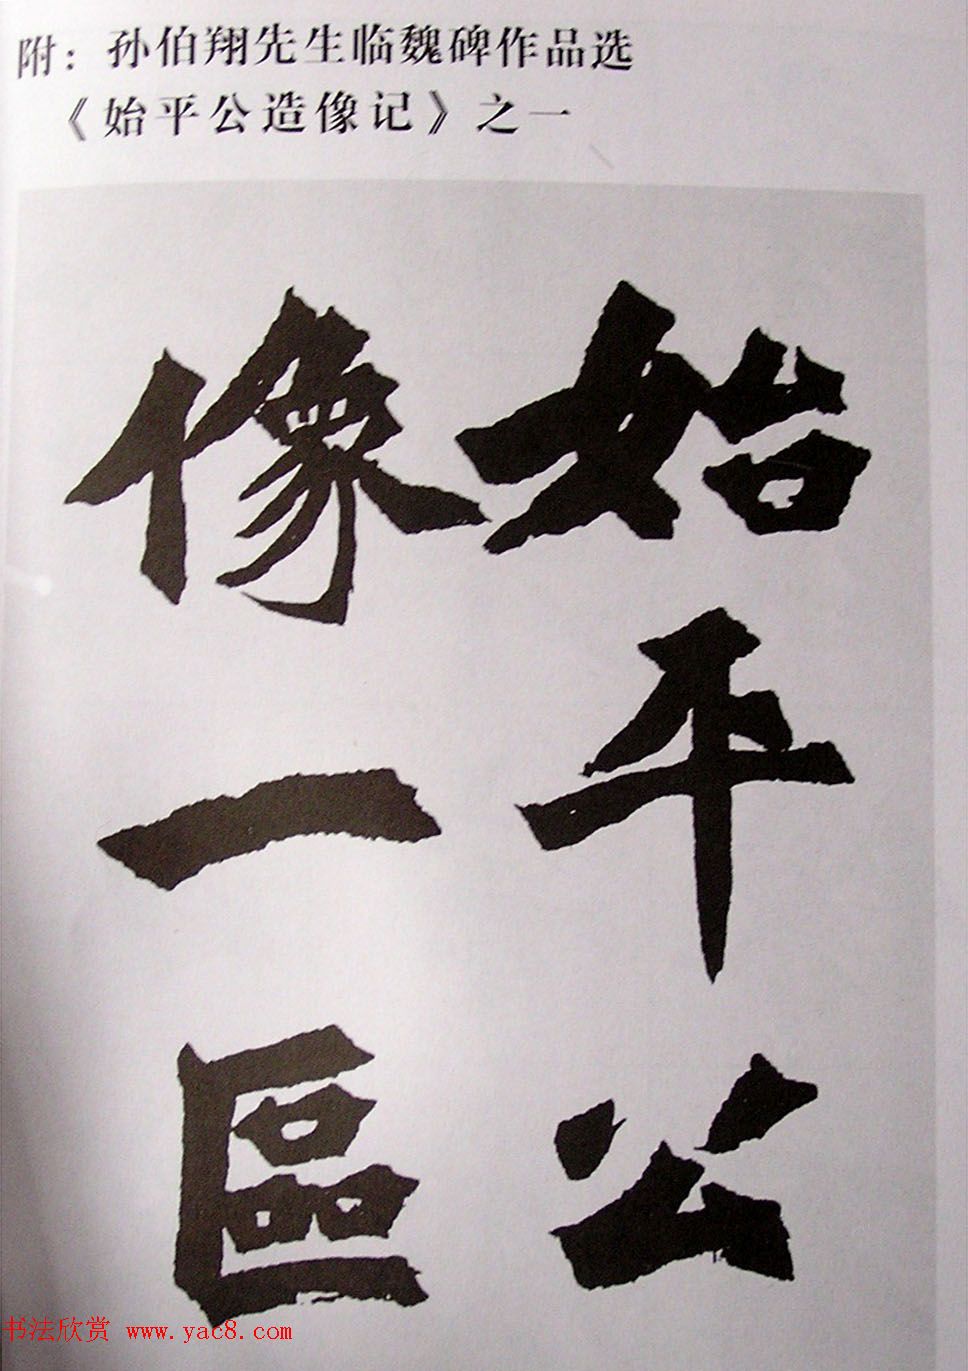 附：孙伯翔先生临魏碑作品选
《始平公造像记》之一
始平公
像一區
书法欣赏 www.yac8.com